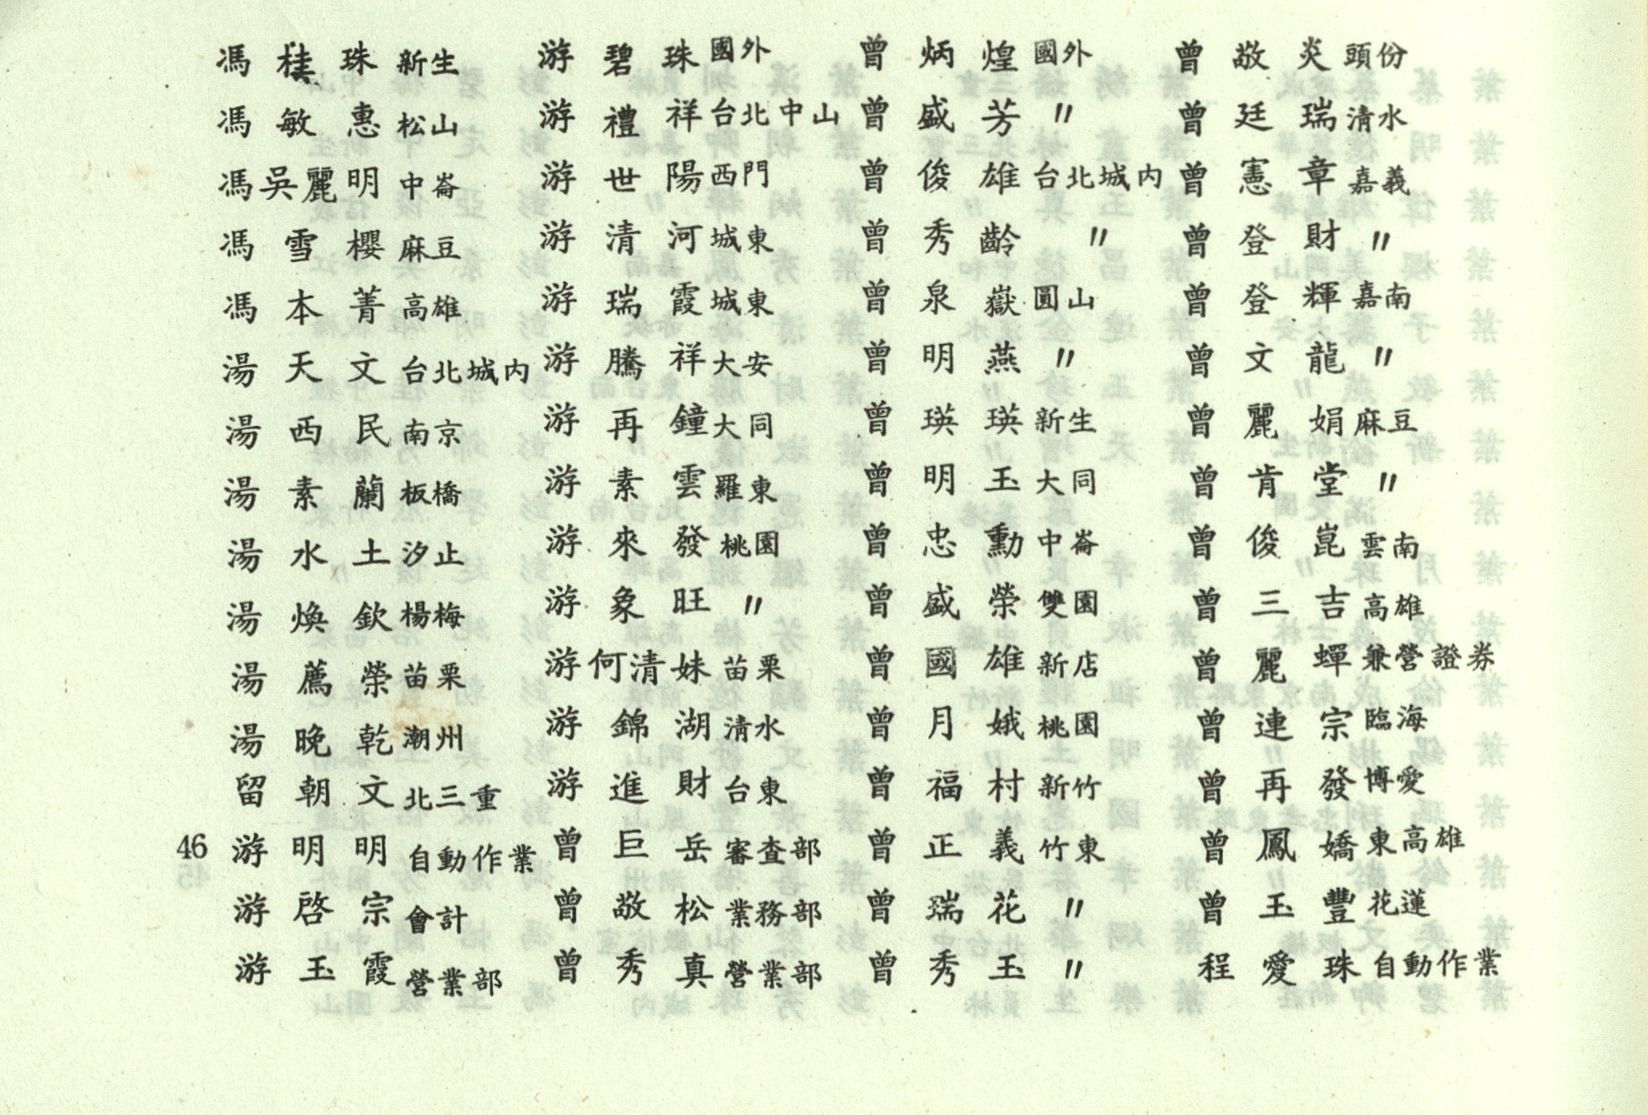 馮桂珠 新生
馮敏惠 松山
馮吳麗明 中崙
馮雪櫻 麻豆
馮本菁 高雄
湯天文 台北城內
湯西民 南京
湯素蘭 板橋
湯水土 汐止
湯煥欽 楊梅
湯薦榮 苗栗
湯晚乾 潮州
留朝文 北三重
游明明 自動作業
游啓宗 會計
游玉霞 營業部
游碧珠 國外
游禮祥 台北中山
游世陽 西門
游清河 城東
游瑞霞 城東
游騰祥 大安
游再鐘 大同
游素雲 羅東
游來發 桃園
游象旺 〃
游何清妹 苗栗
游錦湖 清水
游進財 台東
曾巨岳 審查部
曾敬松 業務部
曾秀真 營業部
曾炳煌 國外
曾盛芳 〃
曾俊雄 台北城內
曾秀齡 〃
曾泉嶽 圓山
曾明燕 〃
曾瑛瑛 新生
曾明玉 大同
曾忠勳 中崙
曾盛榮 雙園
曾國雄 新店
曾月娥 桃園
曾福村 新竹
曾正義 竹東
曾瑞花 〃
曾秀玉 〃
曾敬炎 頭份
曾廷瑞 清水
曾憲章 嘉義
曾登財 〃
曾登輝 嘉南
曾文龍 〃
曾麗娟 麻豆
曾肯堂 〃
曾俊崑 雲南
曾三吉 高雄
曾麗蟬 兼營證券
曾連宗 臨海
曾再發 博愛
曾鳳嬌 東高雄
曾玉豐 花蓮
程愛珠 自動作業
46